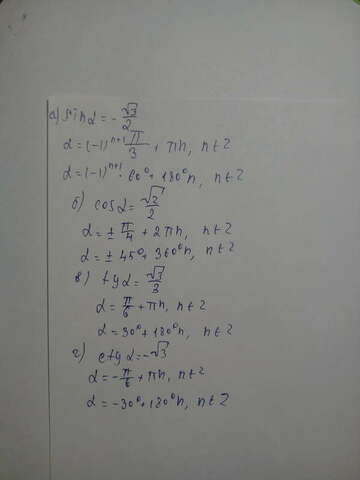 а) sin α = -√3/2
α = (-1)^{n+1} π/3 + πn, n ∈ Z
α = (-1)^{n+1} · 60° + 180°n, n ∈ Z
б) cos α = √2/2
α = ± π/4 + 2πn, n ∈ Z
α = ± 45° + 360°n, n ∈ Z
в) tg α = √3/3
α = π/6 + πn, n ∈ Z
α = 30° + 180°n, n ∈ Z
г) ctg α = -√3
α = -π/6 + πn, n ∈ Z
α = -30° + 180°n, n ∈ Z